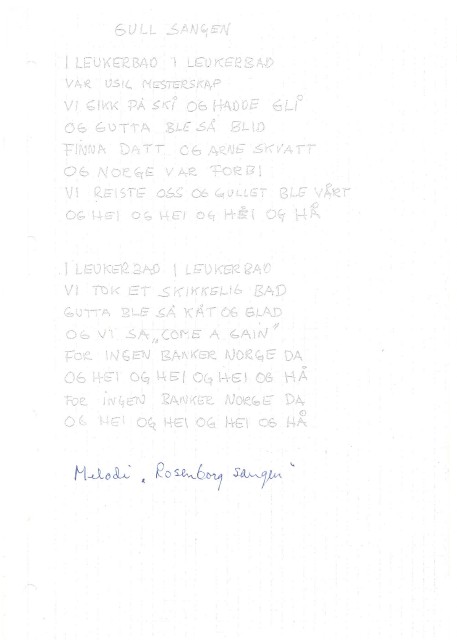 GULL SANGEN
I LEUKERBAD I LEUKERBAD
VAR USIC MESTERSKAP
VI GIKK PÅ SKI OG HADDE GLI
OG GUTTA BLE SÅ BLID
FINNA DATT OG ARNE SKVATT
OG NORGE VAR FORBI
VI REISTE OSS OG GULLET BLE VÅRT
OG HEI OG HEI OG HEI OG HÅ
I LEUKERBAD I LEUKERBAD
VI TOK ET SKIKKELIG BAD
GUTTA BLE SÅ KÅT OG GLAD
OG VI SA „COME A GAIN"
FOR INGEN BANKER NORGE DA
OG HEI OG HEI OG HEI OG HÅ
FOR INGEN BANKER NORGE DA
OG HEI OG HEI OG HEI OG HÅ
Melodi „Rosenborg sangen"